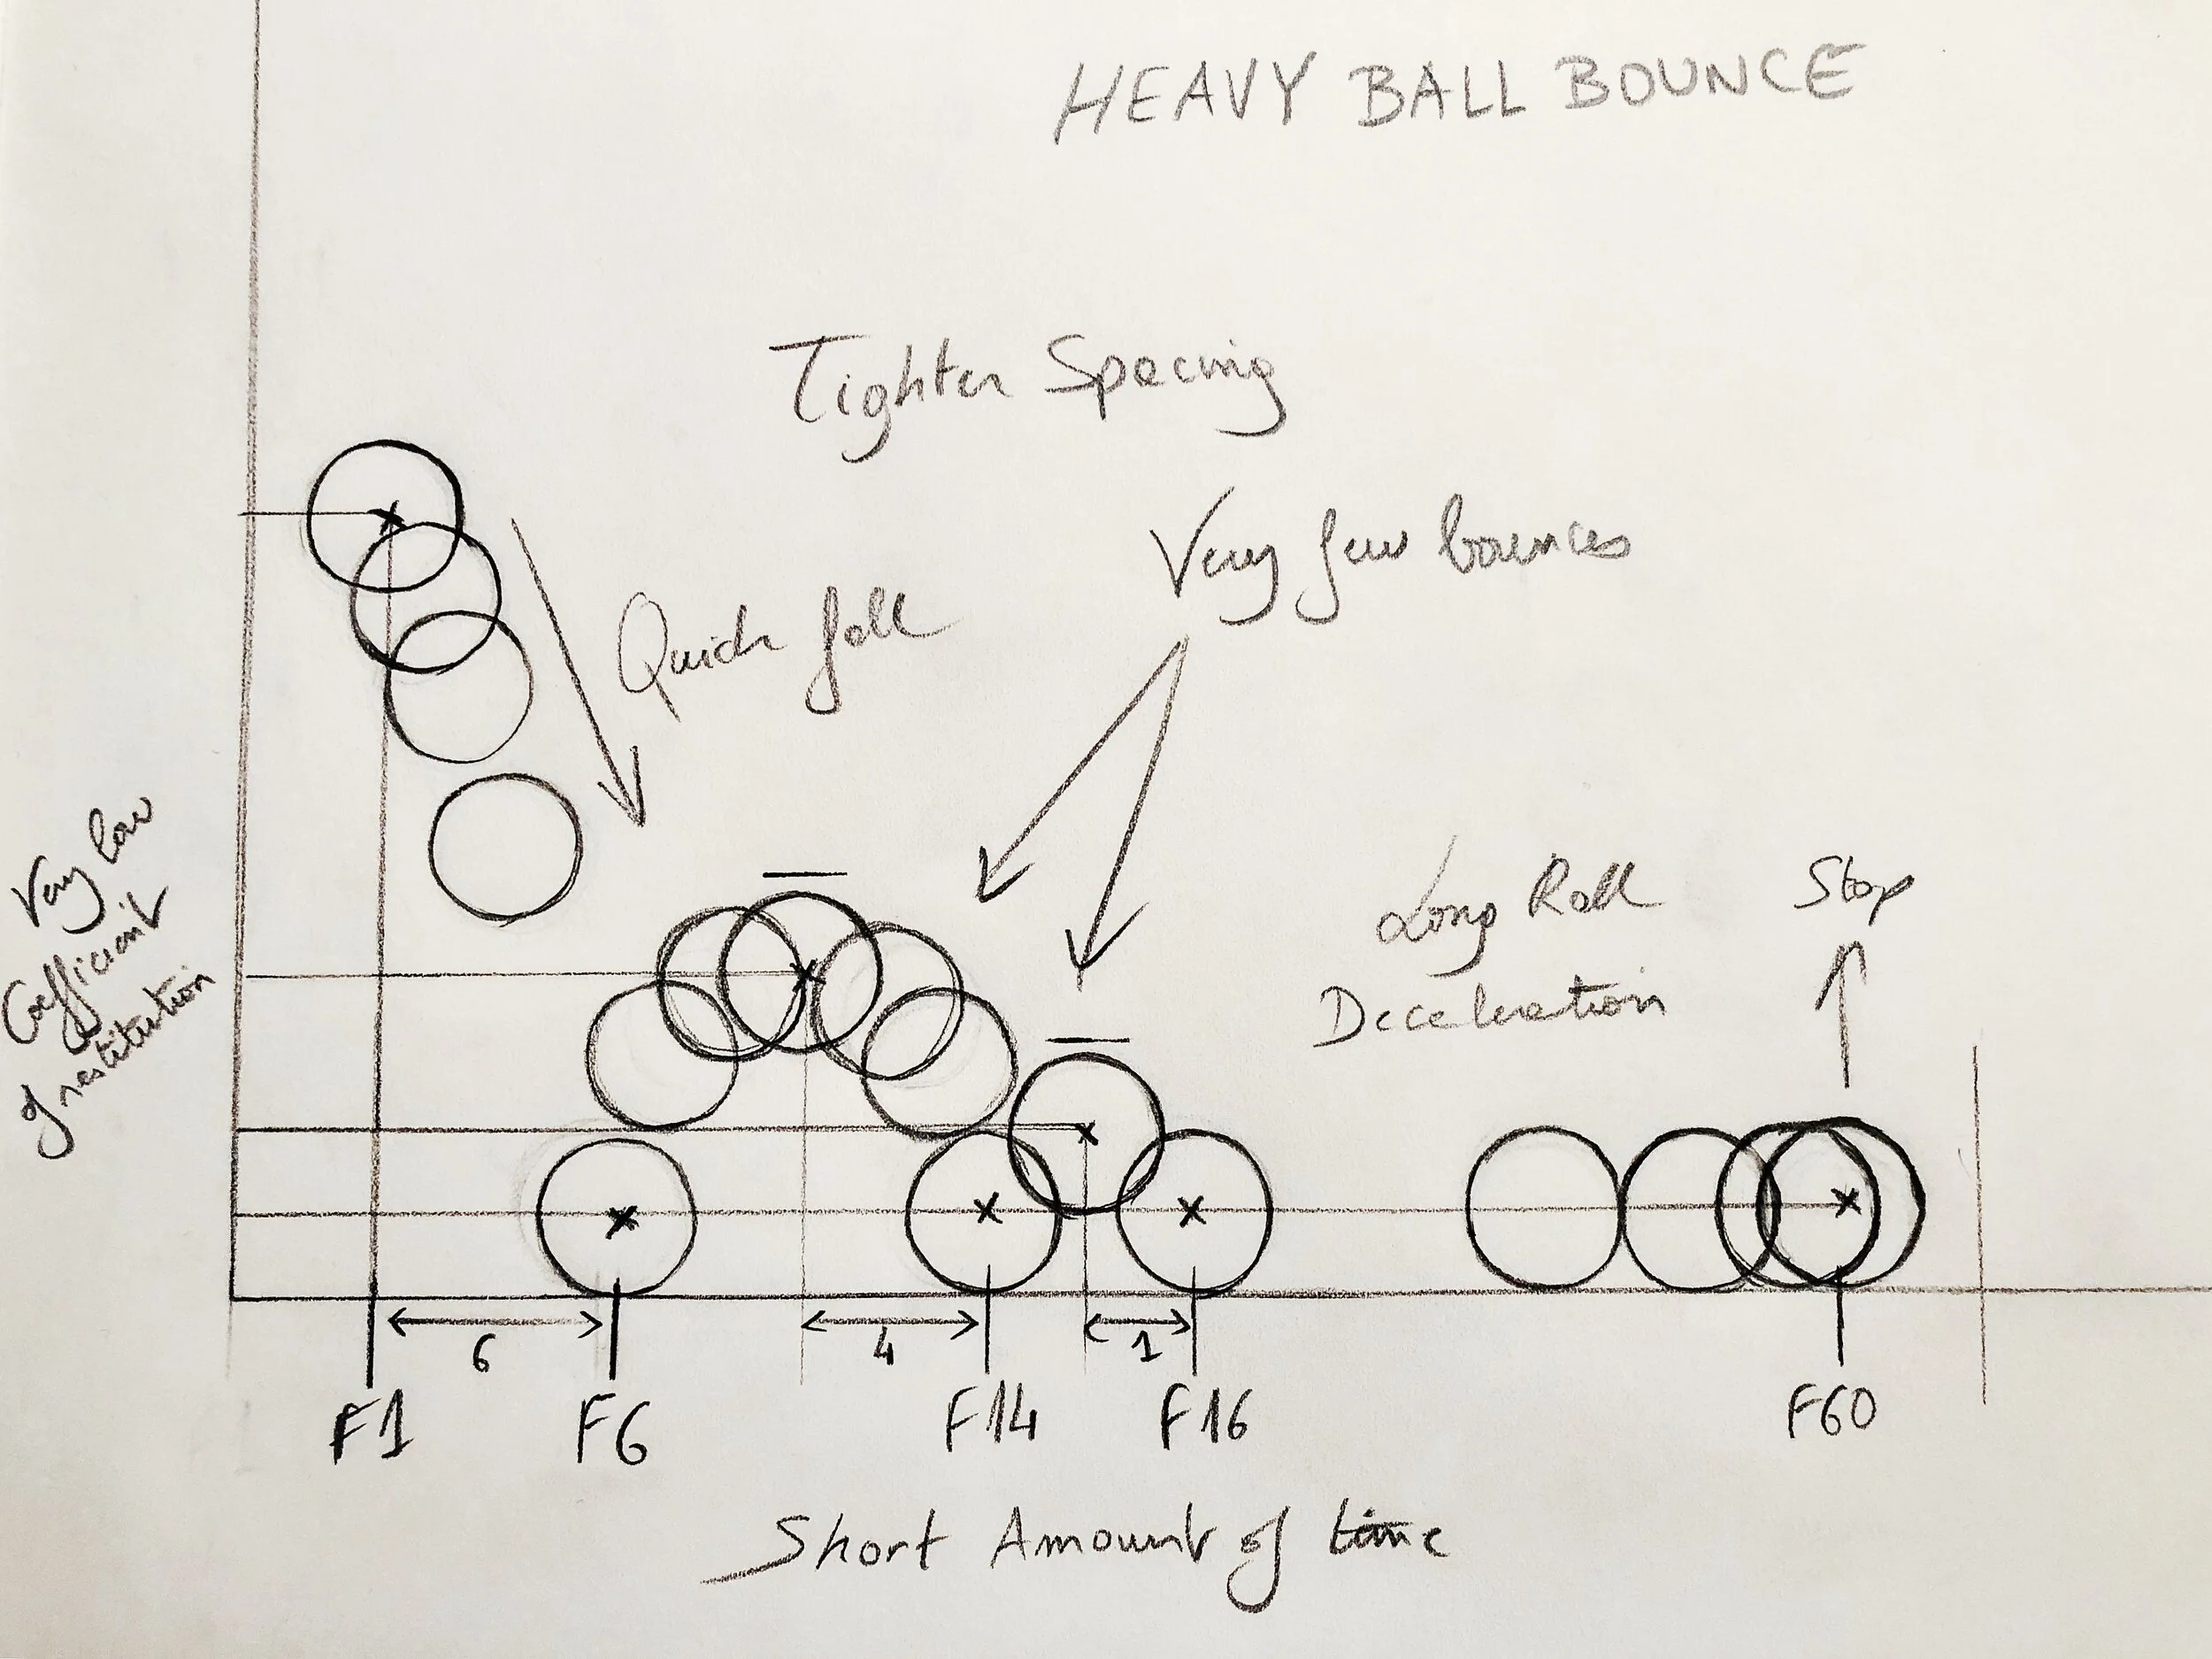 HEAVY BALL BOUNCE
Tighter Spacing
Very few bounces
Quick fall
Very low
Coefficient
of restitution
Long Roll
Deceleration
Stop
6
4
1
F1
F6
F14
F16
F60
Short Amount of time